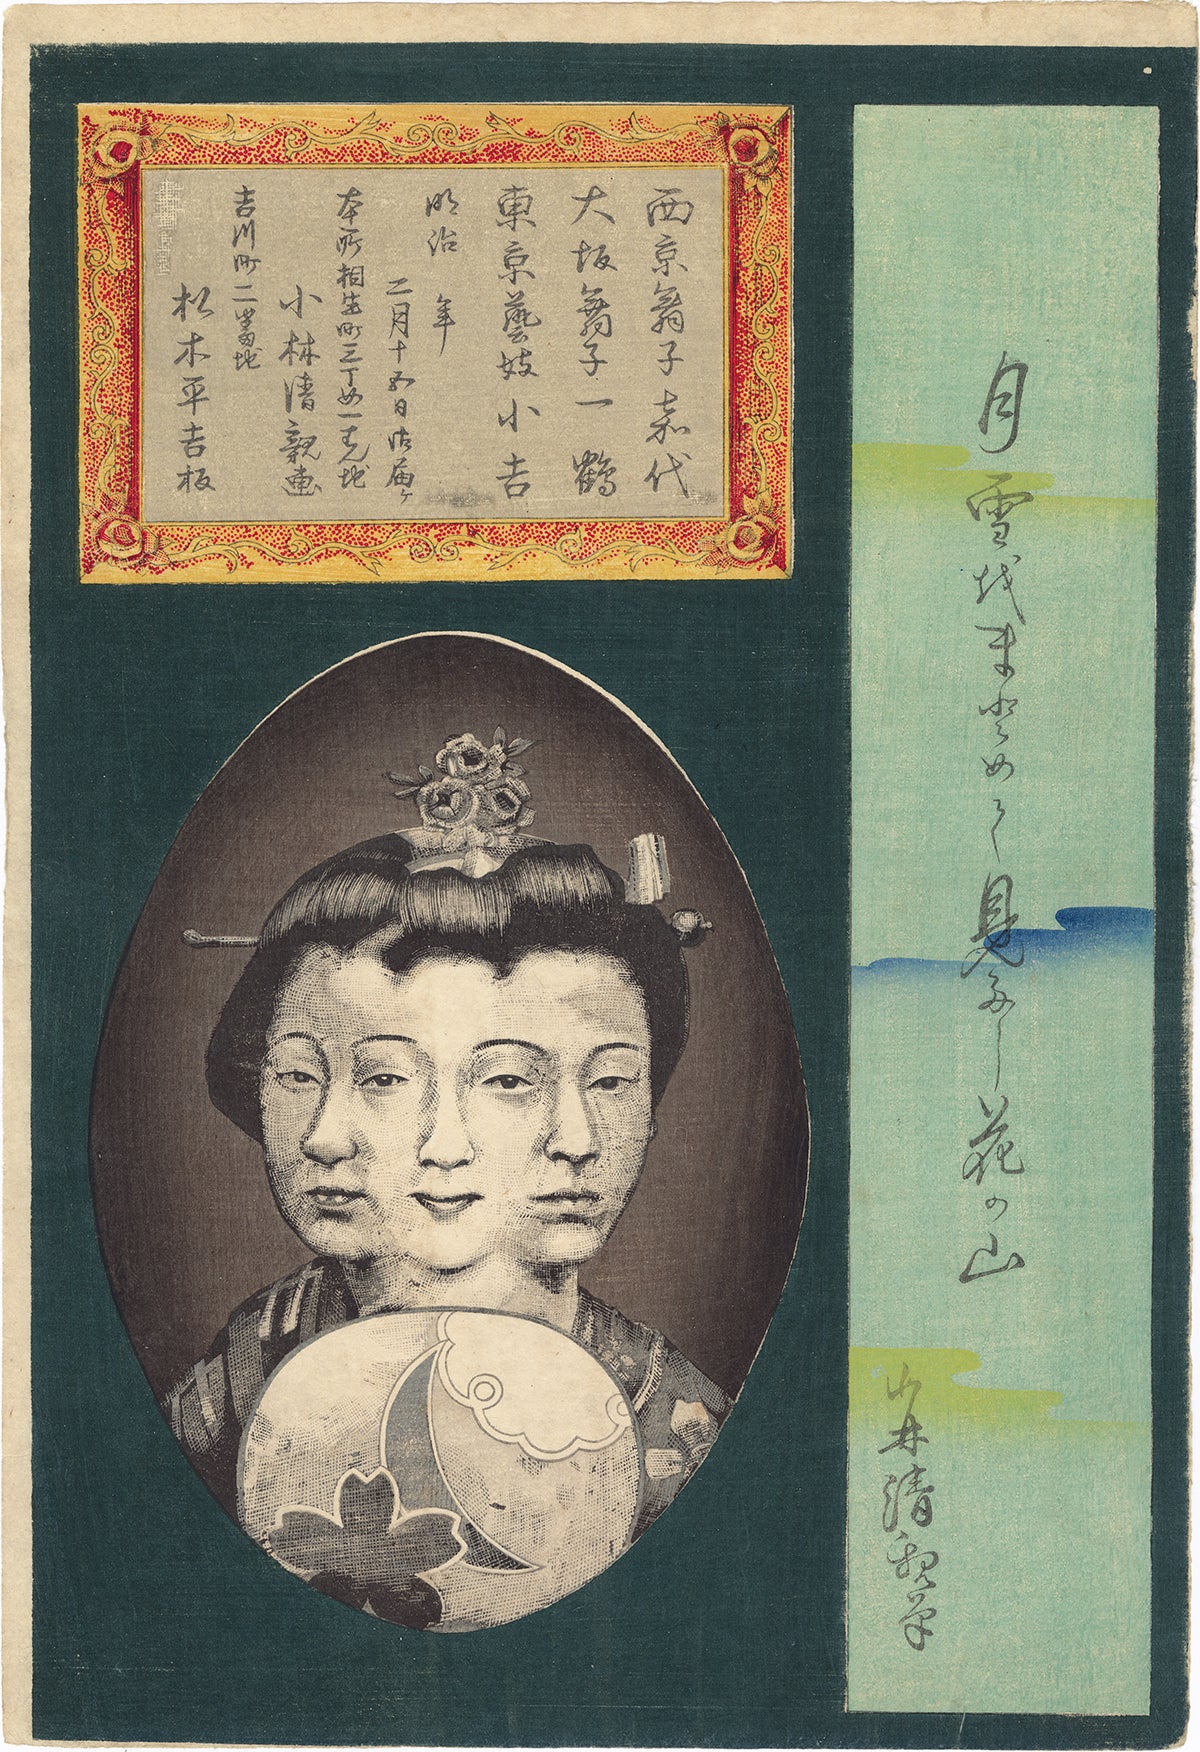 月雪越まとめて見多し花の山
小林清親筆
西京舞子嘉代
大坂舞子一鶴
東京藝妓小吉
明治　年
二月十五日御届ケ
本所相生町三丁目一番地
小林清親画
吉川町二番地
松木平吉板